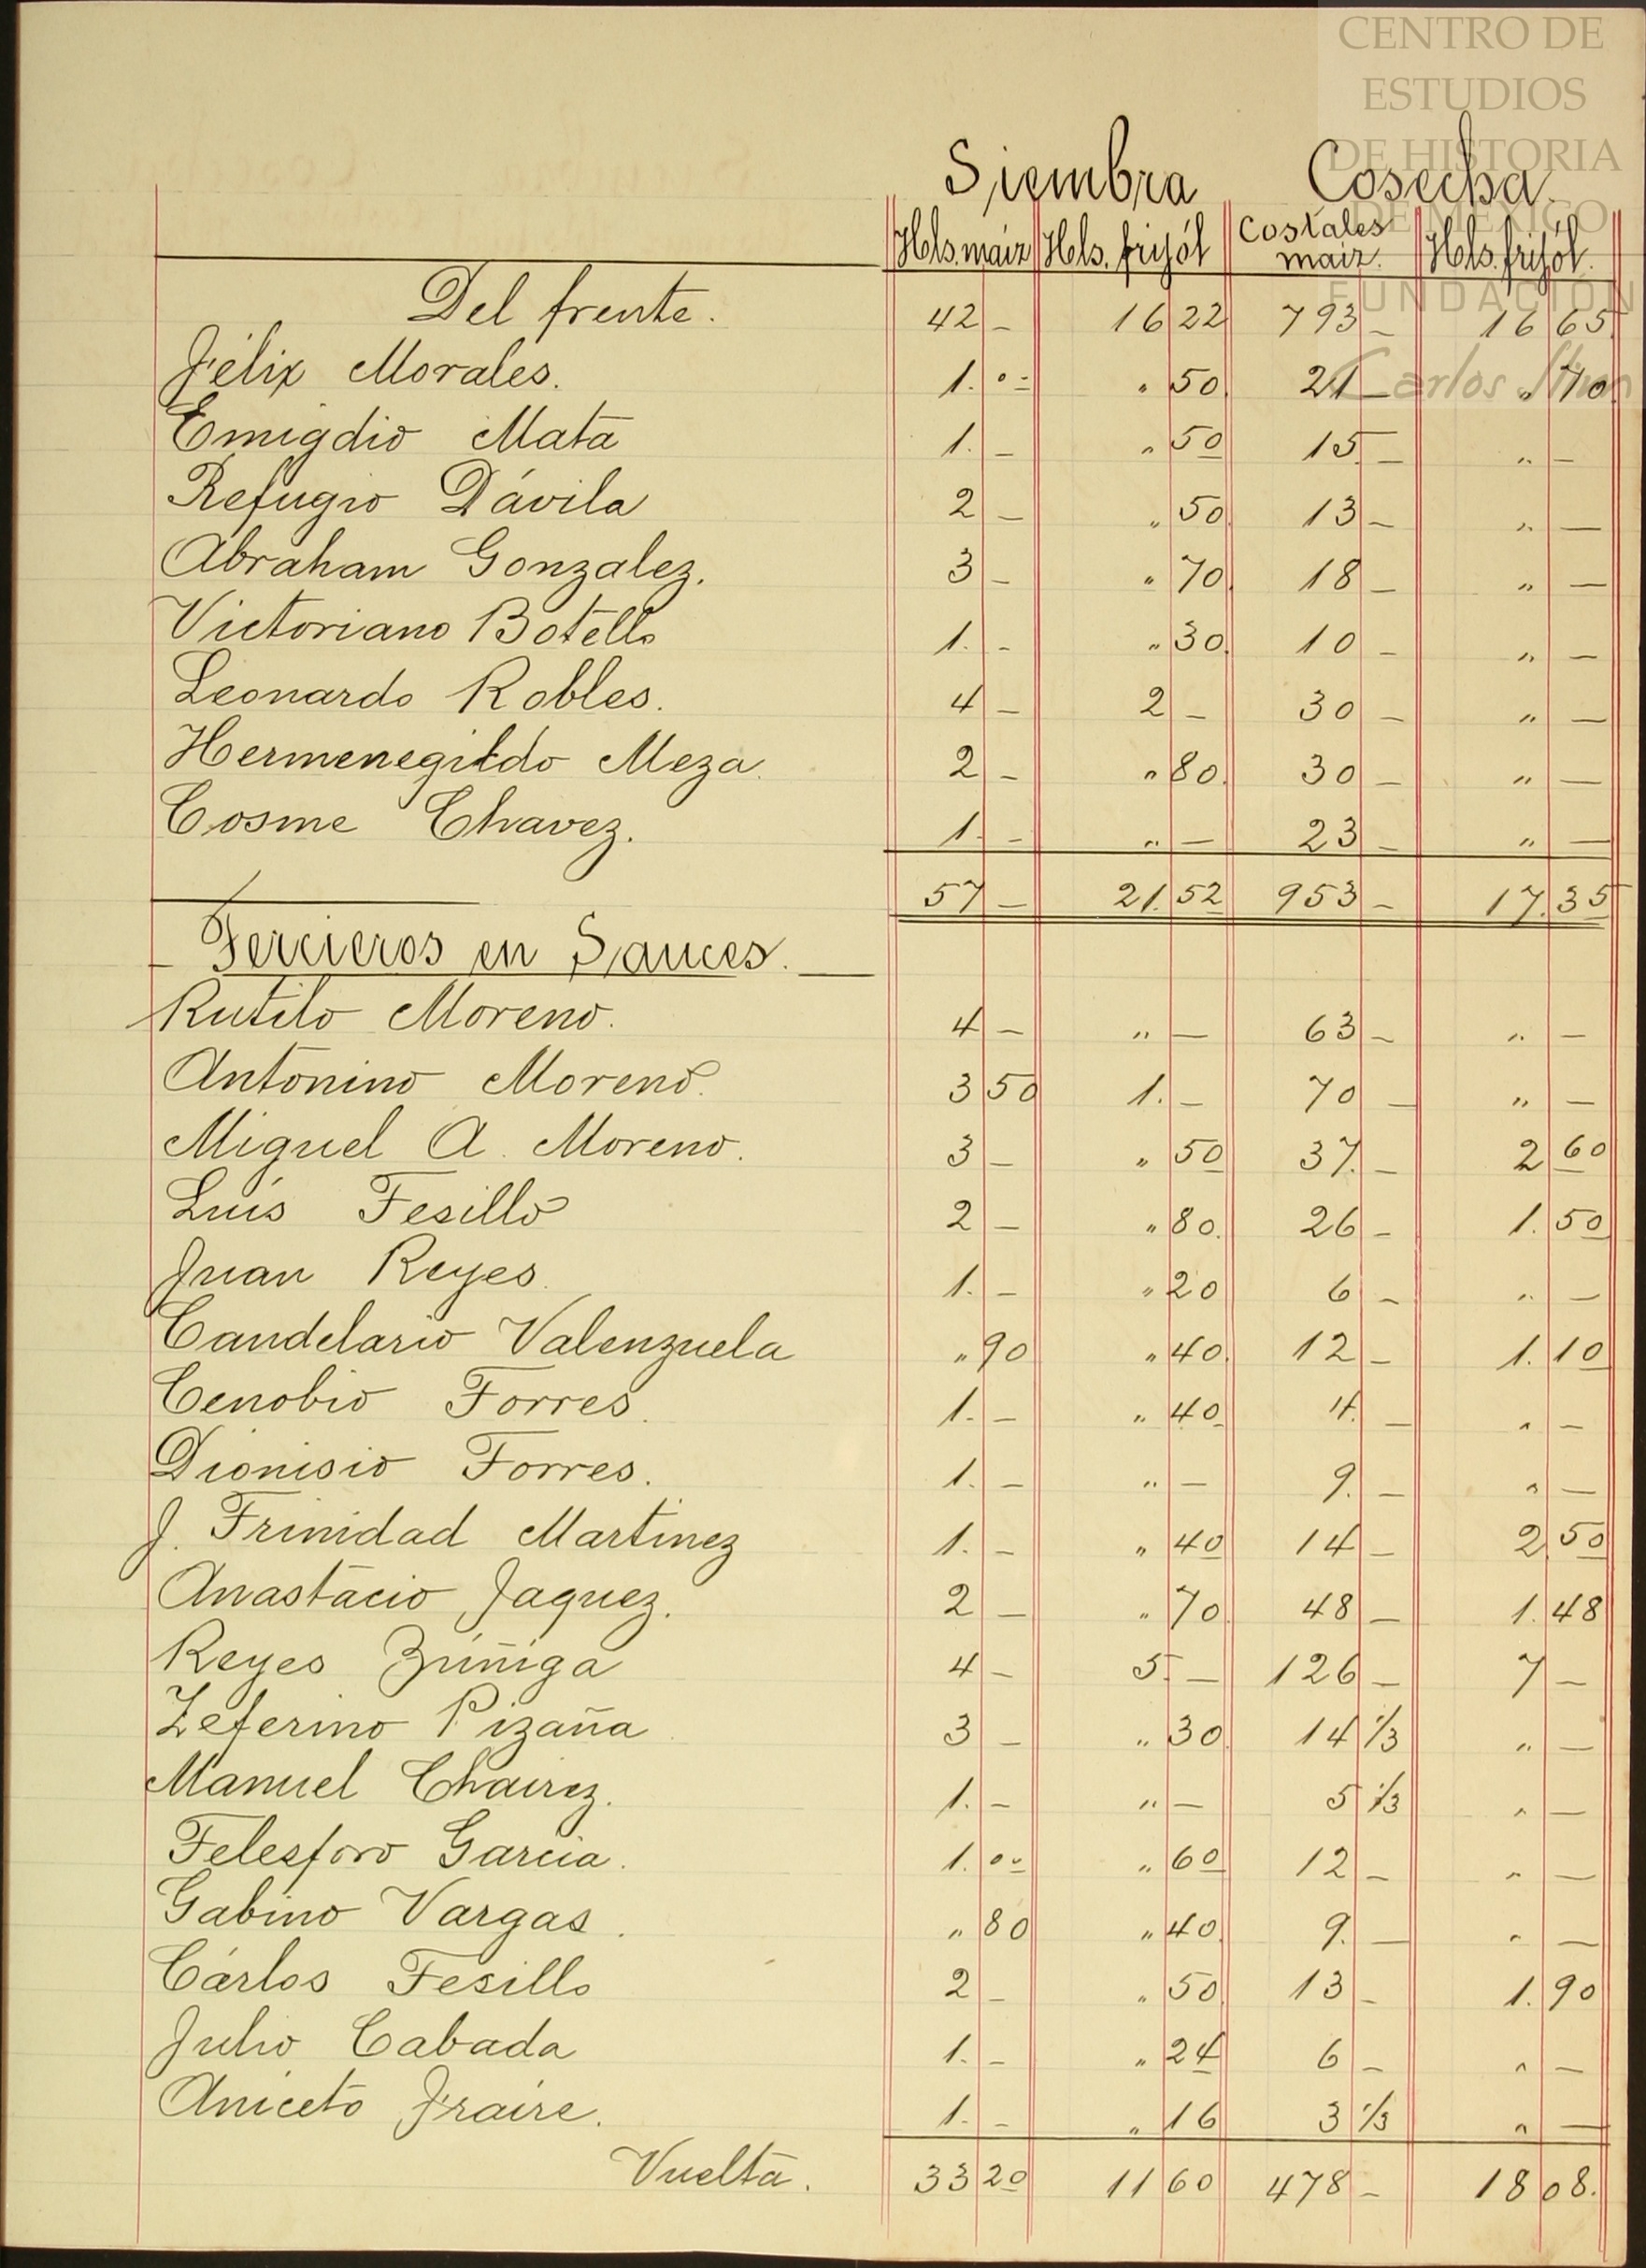 CENTRO DE
ESTUDIOS
DE HISTORIA
DE MÉXICO
FUNDACIÓN
Carlos Slim
Siembra Cosecha.
Hls. maíz Hls. frijól Costales maíz. Hls. frijól.
Del frente. 42 – 16 22 793 – 16 65.
Félix Morales. 1. 00 " 50. 21 – " 70.
Emigdio Mata 1. – " 50 15. – " –
Refugio Dávila 2 – " 50. 13 – " –
Abraham Gonzalez. 3 – " 70. 18 – " –
Victoriano Botello 1. – " 30. 10 – " –
Leonardo Robles. 4 – 2 – 30 – " –
Hermenegildo Meza. 2 – " 80. 30 – " –
Cosme Chavez. 1. – " – 23 – " –
57 – 21. 52 953 – 17. 35
– Tercieros en Sauces. –
Rutilo Moreno. 4 – " – 63 – " –
Antonino Moreno. 3 50 1. – 70 – " –
Miguel A. Moreno. 3 – " 50 37. – 2 60
Luis Tesillo 2 – " 80. 26 – 1. 50
Juan Reyes. 1. – " 20 6 – " –
Candelario Valenzuela " 90 " 40. 12 – 1. 10
Cenobio Torres. 1. – " 40 4. – " –
Dionisio Torres. 1. – " – 9. – " –
J. Trinidad Martinez 1. – " 40 14 – 2. 50
Anastacio Jaquez. 2 – " 70. 48 – 1. 48
Reyes Zúñiga 4 – 5. – 126 – 7 –
Zeferino Pizaña 3 – " 30. 14 1/3 " –
Manuel Chairez. 1. – " – 5 1/3 " –
Telesforo Garcia. 1. 00 " 60 12 – " –
Gabino Vargas. " 80 " 40. 9. – " –
Cárlos Tesillo 2 – " 50. 13 – 1. 90
Julio Cabada 1. – " 24 6 – " –
Aniceto Fraire. 1. – " 16 3 1/3 " –
Vuelta. 33 20 11 60 478 – 18 08.